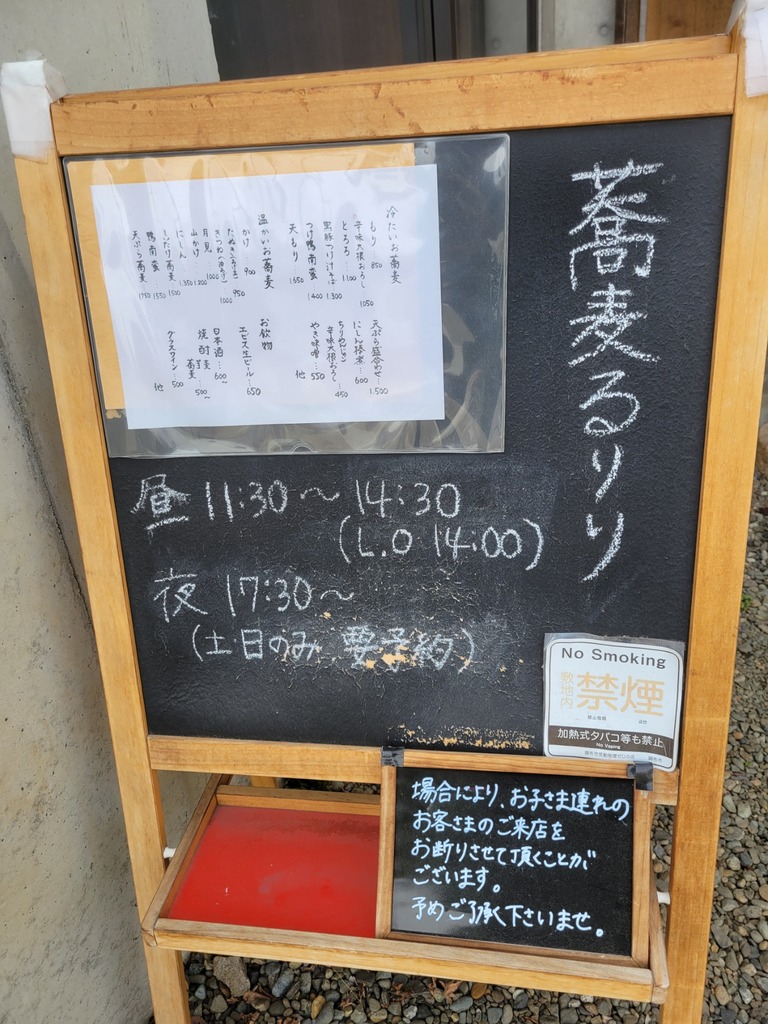 蕎麦るり
冷たいお蕎麦
もり 850
辛味大根おろし 1050
とろろ 1100
黒豚つけ汁そば 1300
つけ鴨南蛮 1400
天もり 1650
温かいお蕎麦
かけ 900
たぬき 950
きつね 1000
月見 1000
山かけ 1200
にしん 1350
しいたけ蕎麦 1500
鴨南蛮 1550
天ぷら蕎麦 1750
天ぷら盛合わせ… 1,500
にしん棒煮… 600
ちりめんじゃこ
辛味大根おろし… 450
やき味噌… 550
他
お飲物
エビス生ビール… 650
日本酒… 600~
焼酎 麦 蕎麦… 500~
グラスワイン… 500
他
昼 11:30~14:30
(L.O 14:00)
夜 17:30~
(土・日のみ 要予約)
No Smoking
敷地内
禁煙
加熱式タバコ等も禁止
No Vaping
場合により、お子さま連れの
お客さまのご来店を
お断りさせて頂くことが
ございます。
予めご了承下さいませ。